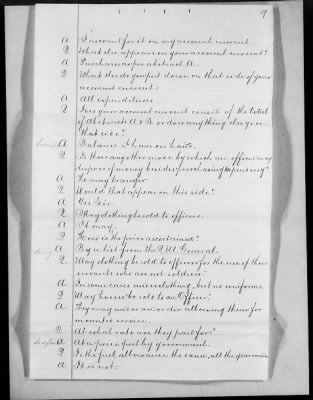 9
A I account for it on my account current
Q What else appears on your account current?
A Purchases as per abstract A.
Q What else do you put down on that side of your
account current
A All expenditures
Q Does your account current consist of the total
of Abstracts A & B or does anything else go on
that side?
A Balance I have on hand
Q Is there any other mode by which an officer may
dispose of money besides purchasing & expending?
A He may transfer
Q Would that appear on this side?
A Yes Sir.
Q May clothing be sold to officers.
A It may.
Q How is the price ascertained?
A By a list from the Q.M. General.
Q May clothing be sold to officers for the use of their
servants who are not soldiers?
A In some cases under clothing, but no uniforms
Q May horses be sold to an Officer?
A They may under an order allowing them for
mounted service.
Q At what rate are they paid for?
A At a price fixed by government.
Q Is the fuel allowance the same, all the year round
A It is not.